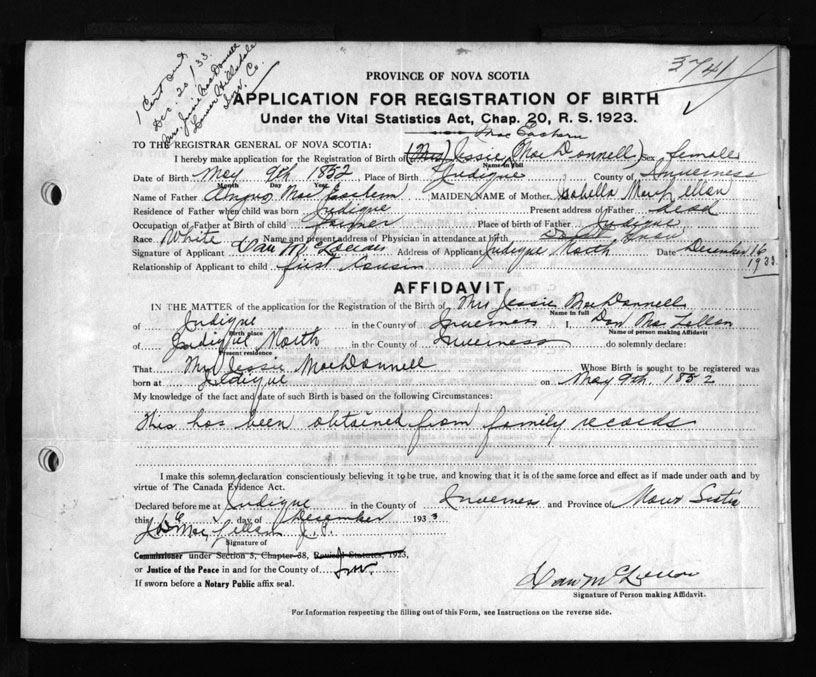 1 Cert Sent
Dec. 20/33.
Mrs Jessie MacDonnell
Hillsdale
Inv. Co.
3741
PROVINCE OF NOVA SCOTIA
APPLICATION FOR REGISTRATION OF BIRTH
Under the Vital Statistics Act, Chap. 20, R. S. 1923.
Mac Eachern
TO THE REGISTRAR GENERAL OF NOVA SCOTIA:
I hereby make application for the Registration of Birth of (Mrs) Jessie (MacDonnell) Sex female
Name in full
Date of Birth May 9th 1852 Place of Birth Judique County of Inverness
Month Day Year
Name of Father Angus Mac Eachern MAIDEN NAME of Mother Isabella MacLellan
Residence of Father when child was born Judique Present address of Father dead
Occupation of Father at Birth of child farmer Place of birth of Father Judique
Race White Name and present address of Physician in attendance at birth
Signature of Applicant Dan Address of Applicant Judique North Date December 16
1933.
Relationship of Applicant to child first Cousin
AFFIDAVIT
IN THE MATTER of the application for the Registration of the Birth of Mrs Jessie MacDonnell
Name in full
of Judique in the County of Inverness I, Dan MacLellan
Birth place Name of person making Affidavit
of Judique North in the County of Inverness do solemnly declare:
Present residence
That Mrs Jessie MacDonnell Whose Birth is sought to be registered was
born at Judique on May 9th. 1852
My knowledge of the fact and date of such Birth is based on the following Circumstances:
This has been obtained from family records
I make this solemn declaration conscientiously believing it to be true, and knowing that it is of the same force and effect as if made under oath and by
virtue of The Canada Evidence Act.
Declared before me at Judique in the County of Inverness and Province of Nova Scotia
this 16 day of December 1933
MacLellan J. P.
Signature of
Commissioner under Section 3, Chapter 38, Revised Statutes, 1923,
or Justice of the Peace in and for the County of Inv.
If sworn before a Notary Public affix seal.
Dan McLellan
Signature of Person making Affidavit.
For Information respecting the filling out of this Form, see Instructions on the reverse side.